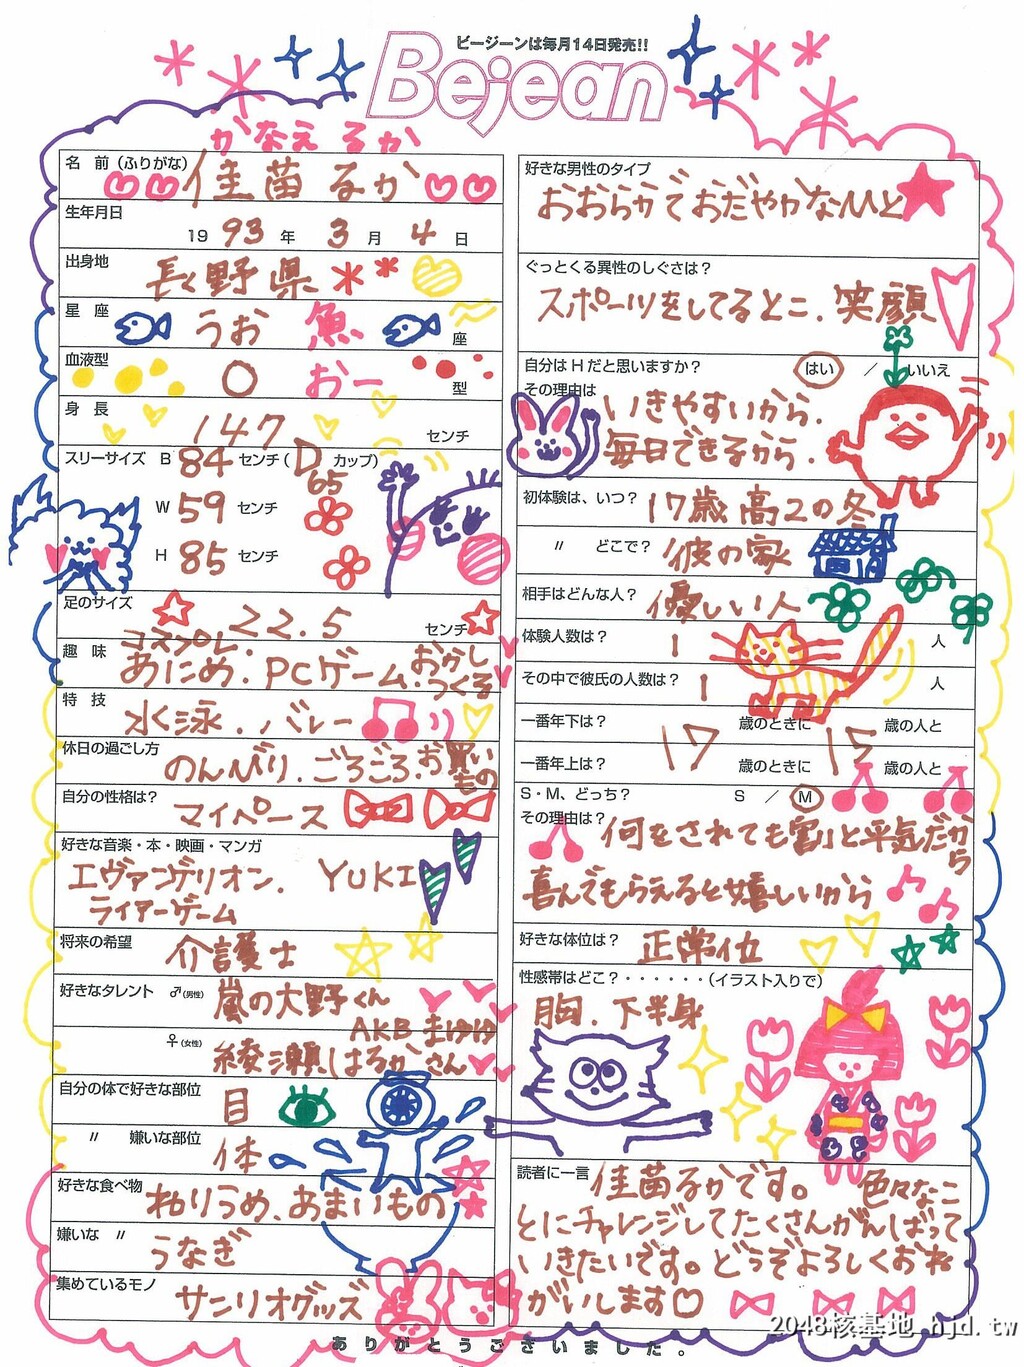 ビージーンは毎月14日発売!!
Bejean
かなえ るか
名 前（ふりがな）
佳苗 るか
生年月日
19 93 年 3 月 4 日
出身地
長野県
星 座
うお 魚 座
血液型
O おー 型
身 長
147 センチ
スリーサイズ B 84 センチ（ D カップ）
65
W 59 センチ
H 85 センチ
足のサイズ
22.5 センチ
趣 味
コスプレ・
あにめ・PCゲーム・おかしつくる
特 技
水泳．バレー
休日の過ごし方
のんびり．ごろごろ．お買いもの
自分の性格は？
マイペース
好きな音楽・本・映画・マンガ
エヴァンゲリオン． YUKI
ライアーゲーム
将来の希望
介護士
好きなタレント ♂(男性)
嵐の大野くん
AKB まゆゆ
♀(女性)
綾瀬はるかさん
自分の体で好きな部位
目
〃 嫌いな部位
体
好きな食べ物
ねりうめ、あまいもの
嫌いな 〃
うなぎ
集めているモノ
サンリオグッズ
好きな男性のタイプ
おおらかでおだやかな人と
ぐっとくる異性のしぐさは？
スポーツをしてるとこ．笑顔
自分はHだと思いますか？ はい ／ いいえ
その理由は
いきやすいから．
毎日できるから．
S・M、どっち？ S ／ M
その理由は？
何をされても割と平気だから
喜んでもらえると嬉しいから
好きな体位は？
正常位
性感帯はどこ？・・・・・・（イラスト入りで）
胸．下半身
読者に一言
佳苗るかです。 色々なこ
とにチャレンジしてたくさんがんばって
いきたいです。どうぞよろしくおね
がいします♡
ありがとうございました。
2048核基地 hjd.tw